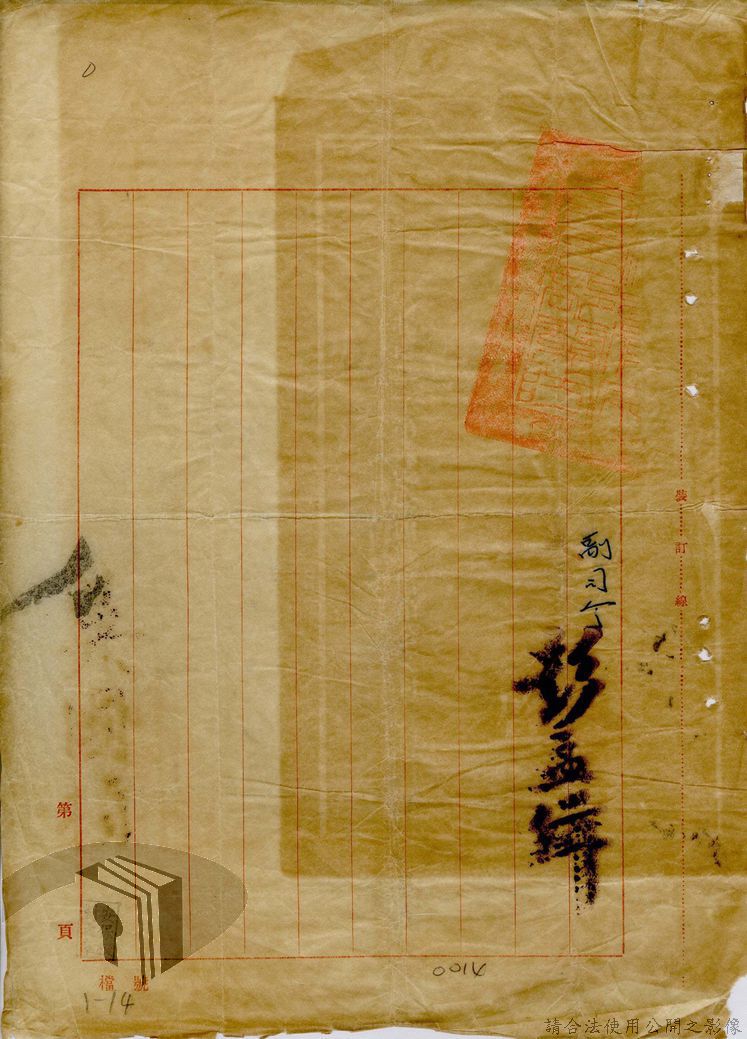 副司令 彭孟緝
裝訂線
第 頁
檔號
1-14
0014
請合法使用公開之影像